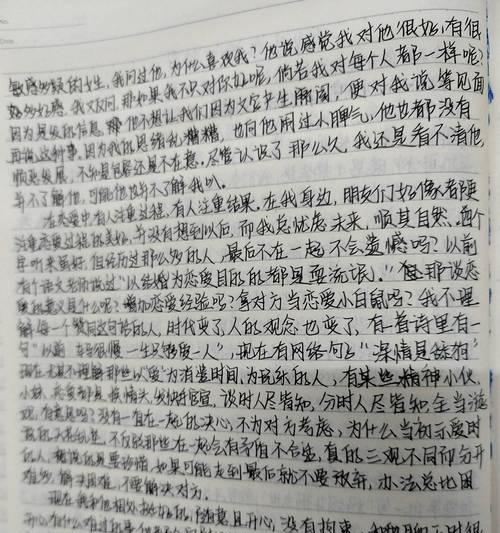 敏感多疑的女生,我问过他,为什么喜欢我?他说感觉我对他很好,有很
好的感。我又问,那如果我不只对你好呢,倘若我对每个人都一样呢?
因为是发的信息,他不想让我们因为文字产生隔阂,便对我说等见面
再说这种事。因为我的思绪乱糟糟,也向他用过小脾气,他也都没有
顺意发展,不知是包容还是不在意。尽管认识了那么久,我还是看不清他
并不了解他,可能他也并不了解我叭。
在恋爱中有人注重过程,有人注重结果。在我身边,朋友们好像都更
注重恋爱过程的美好,并没有想到以后,而我总忧虑未来,顺其自然,每个
字听来虽好,但经历过那么多的人,最后不在一起不会遗憾吗?以前
有个语文老师说过“以结婚为恋爱目的的都是耍流氓。”但那谈恋
爱的意义是什么呢?增加恋爱经验吗?拿对方当恋爱小白鼠吗?我不理
解每一个赞同这句话的人,时代变了,人的观念也变了,有一首诗里有一
句“以前 车马很慢一生只够爱一人”,现在有网络句“深情是舔狗”
现在太不理解那些以“爱”为消遣时间,为玩乐的人,有某些精神小伙、
小妹,恋爱制度,换情头,发抖音官宣,谈时人尽皆知,分时人尽皆知,全当游
戏,有意思吗?没有一直在一起的决心,不为对方考虑,为什么当初示爱时
不包括那些在一起会有矛盾不合适,真的三观不同而分开
的人,我说的是要珍惜,如果可能走到最后就不要放弃,办法总比困
难多,解决困难,不要解决对方。
现在我和他相处挺好的,随意且开心,没有拘束,